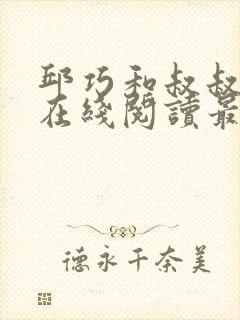 邱巧和叔叔
在綫閱讀最
德永千奈美